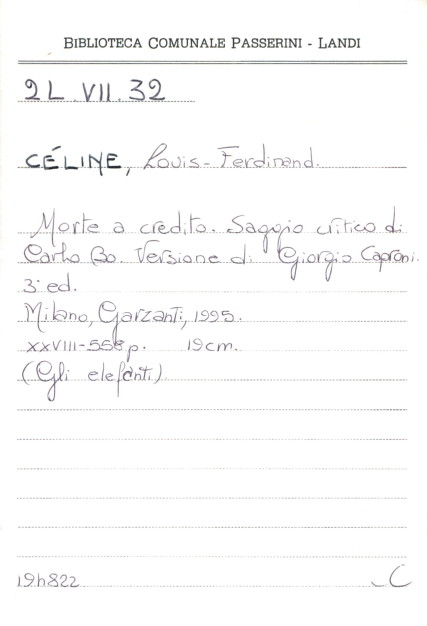 BIBLIOTECA COMUNALE PASSERINI - LANDI
2L.VII.32
CÉLINE, Louis-Ferdinand.
Morte a credito. Saggio critico di
Carlo Bo. Versione di Giorgio Caproni.
3ª ed.
Milano, Garzanti, 1995.
XXVIII-558p. 19cm.
(Gli elefanti)
19h822 C